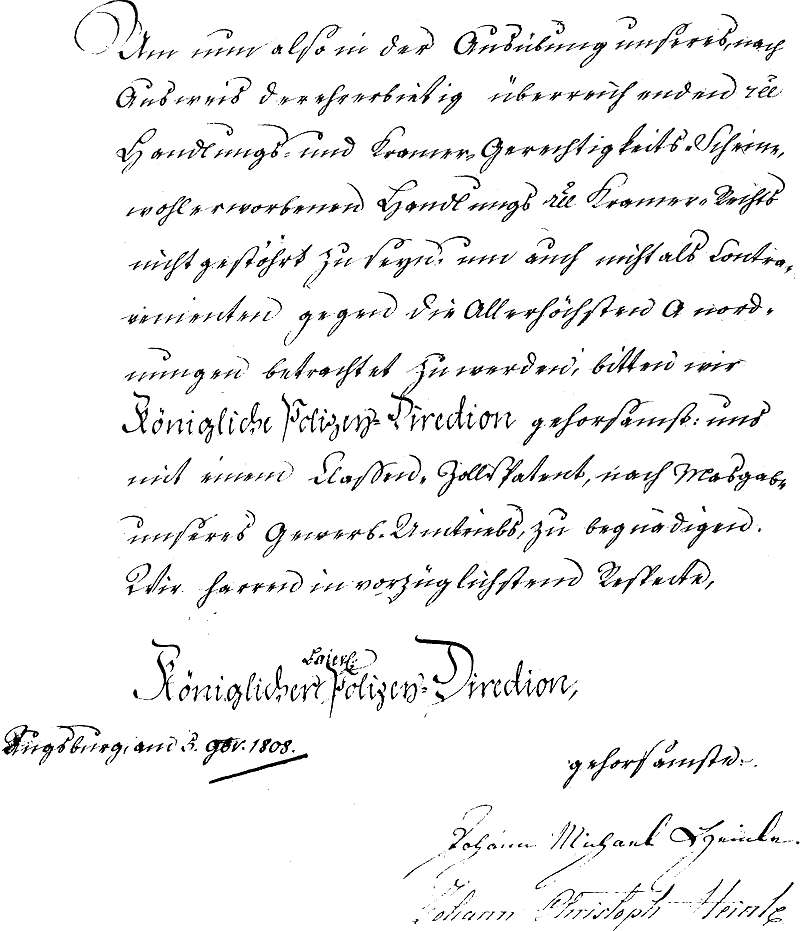 Um nun also in der Ausübung unseres, nach
Ausweis der ehrerbietig überreichenden
Handlungs- und Kramer-Gerechtigkeits-Scheine,
wohlerworbenen Handlungs Kramer-Rechts
nicht gestöhrt zu seyn, um auch nicht als Contra-
venienten gegen die Allerhöchsten Anord-
nungen betrachtet zu werden, bitten wir
Königliche Polizey-Direction gehorsamst: uns
mit einem Classen-Zolls Patent, nach Masgabe
unseres Gewerb-Umtriebs, zu begnadigen.
Wir harren in vorzüglichstem Respecte,
Baierl:
Königlicher Polizey-Direction,
Augsburg, am 5. 9br. 1808.
gehorsamste
Johann Michael
Johann Christoph